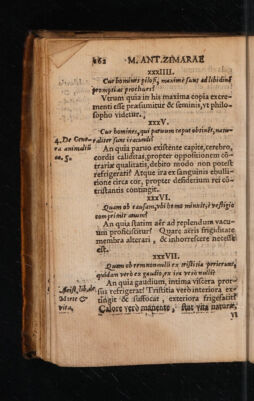 262 M. ANT. ZIMARAE
XXXIIII.
Cur homines pilosi, maximè sunt ad libidinē
promptiac proclives?
Verum quia in his maxima copia excre-
menti esse præsumitur & seminis, vt philo-
sopho videtur.
XXXV.
Cur homines, qui paruum caput obtinēt, natu-
4. De Gene- raliter sunt iracundi?
ra animaliū An quia paruo existente capite, cerebro,
ca. 5. cordis caliditas, propter oppositionem cō-
trariæ qualitatis, debito modo non potest
refrigerari? Atque ira ex sanguinis ebulli-
tione circa cor, propter desiderium rei cō-
tristantis contingit.
XXXVI.
Quam ob causam, vbi homo minxit, è vestigio
comprimit anum?
An quia statim aër ad replendum vacu-
um proficiscitur? Quare aëris frigiditate
membra alterari, & inhorrescere necesse
est.
XXXVII.
Quam ob rem nonnulli ex tristitia perierunt,
quidam verò ex gaudio, ex ira verò nulli?
An quia gaudium, intima viscera pror-
Arist. lib. de sus refrigerat? Tristitia verò interiora ex-
Morte & tingit & suffocat, exteriora frigefacit?
vita, Calore verò manente, stat vita naturæ,